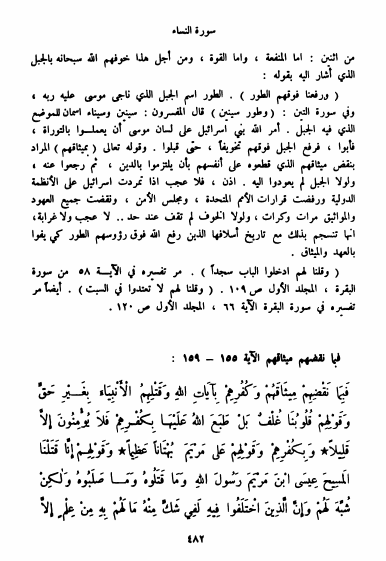 سورة النساء
من اثنين : اما المنفعة ، واما القوة ، ومن أجل هذا خوفهم الله سبحانه بالجبل
الذي أشار اليه بقوله :
( ورفعنا فوقهم الطور ) . الطور اسم الجبل الذي ناجى موسى عليه ربه ،
وفي سورة التين : ( وطور سينين ) قال المفسرون : سينين وسيناء اسمان للموضع
الذي فيه الجبل . أمر الله بني اسرائيل على لسان موسى أن يعملوا بالتوراة ،
فأبوا ، فرفع الجبل فوقهم تخويفاً ، حتى قبلوا . وقوله تعالى (بميثاقهم) المراد
بنقض ميثاقهم الذي قطعوه على أنفسهم بأن يلتزموا بالدين ، ثم رجعوا عنه ،
ولولا الجبل لم يعودوا اليه . اذن ، فلا عجب اذا تمردت اسرائيل على الأنظمة
الدولية ورفضت قرارات الأمم المتحدة ، ومجلس الأمن ، ونقضت جميع العهود
والمواثيق مرات وكرات ، ولولا الخوف لم تقف عند حد .. لا عجب ولا غرابة ،
انها تنسجم بذلك مع تاريخ أسلافها الذين رفع الله فوق رؤوسهم الطور كي يفوا
بالعهد والميثاق .
( وقلنا لهم ادخلوا الباب سجداً ) . مر تفسيره في الآية ٥٨ من سورة
البقرة ، المجلد الأول ص ١٠٩ . ( وقلنا لهم لا تعتدوا في السبت ) . أيضاً مر
تفسيره في سورة البقرة الآية ٦٦ ، المجلد الأول ص ١٢٠ .
فبما نقضهم ميثاقهم الآية ١٥٥ – ١٥٩ :
فَبِمَا نَقْضِهِمْ مِيثَاقَهُمْ وَكُفْرِهِمْ بِآيَاتِ اللهِ وَقَتْلِهِمُ الْأَنْبِيَاءَ بِغَيْرِ حَقٍّ
وَقَوْلِهِمْ قُلُوبُنَا غُلْفٌ بَلْ طَبَعَ اللهُ عَلَيْهَا بِكُفْرِهِمْ فَلَا يُؤْمِنُونَ إِلَّا
قَلِيلاً * وَبِكُفْرِهِمْ وَقَوْلِهِمْ عَلَى مَرْيَمَ بُهْتَاناً عَظِيماً * وَقَوْلِهِمْ إِنَّا قَتَلْنَا
الْمَسِيحَ عِيسَى ابْنَ مَرْيَمَ رَسُولَ اللهِ وَمَا قَتَلُوهُ وَمَا صَلَبُوهُ وَلَكِنْ
شُبِّهَ لَهُمْ وَإِنَّ الَّذِينَ اخْتَلَفُوا فِيهِ لَفِي شَكٍّ مِنْهُ مَا لَهُمْ بِهِ مِنْ عِلْمٍ إِلَّا
٤٨٢